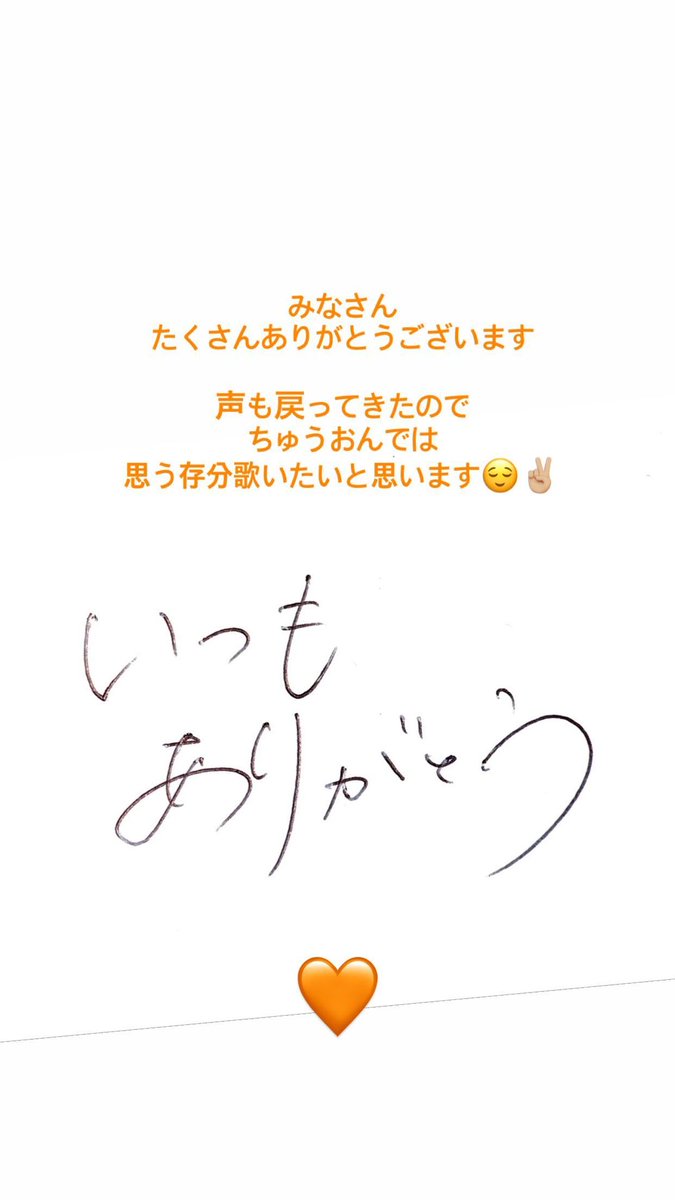 みなさん
たくさんありがとうございます
声も戻ってきたので
ちゅうおんでは
思う存分歌いたいと思います😌✌🏼
いつも
ありがとう
🧡